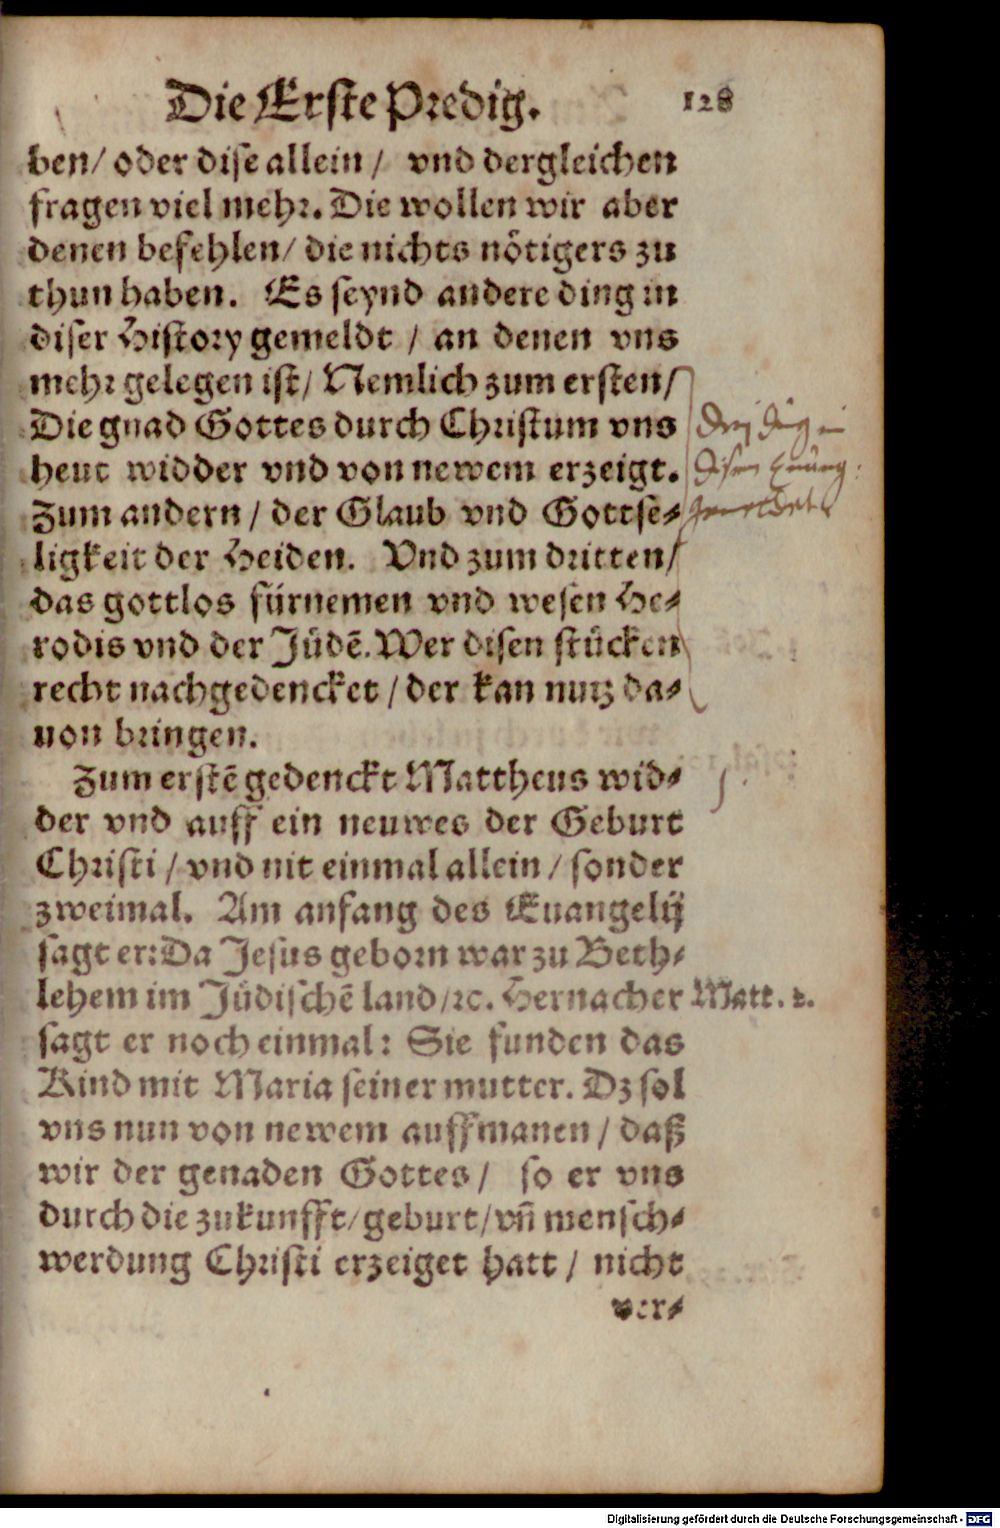 Die Erste Predig. 128
ben/ oder dise allein / vnd dergleichen
fragen viel mehr. Die wollen wir aber
denen befehlen/ die nichts nötigers zu
thun haben. Es seynd andere ding in
diser History gemeldt / an denen vns
mehr gelegen ist/ Nemlich zum ersten/
Die gnad Gottes durch Christum vns
heut widder vnd von newem erzeigt.
Zum andern / der Glaub vnd Gottse-
ligkeit der Heiden. Vnd zum dritten/
das gottlos fürnemen vnd wesen He-
rodis vnd der Jüdē. Wer disen stücken
recht nachgedencket / der kan nutz da-
uon bringen.
Drey ding in
disem
gemeldet
Zum erstē gedenckt Mattheus wid-
der vnd auff ein neuwes der Geburt
Christi / vnd nit einmal allein / sonder
zweimal. Am anfang des Euangelij
sagt er: Da Jesus geborn war zu Beth-
lehem im Jüdischē land / ꝛc. Hernacher
Matt. 2.
sagt er noch einmal: Sie funden das
Kind mit Maria seiner mutter. Dz sol
vns nun von newem auffmanen / daß
wir der genaden Gottes / so er vns
durch die zukunfft/ geburt/ vñ mensch-
werdung Christi erzeiget hatt / nicht
ver-
Digitalisierung gefördert durch die Deutsche Forschungsgemeinschaft - DFG